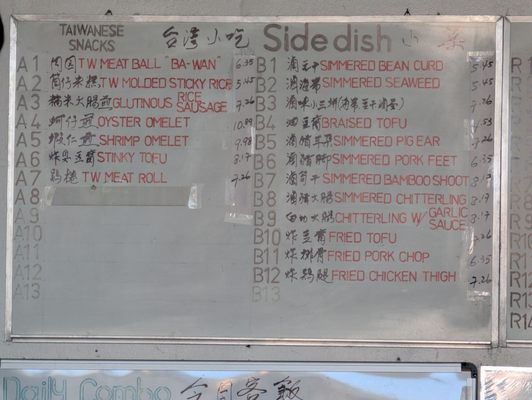 TAIWANESE SNACKS 台灣小吃
A1 肉圓 TW MEAT BALL "BA-WAN" 6.35
A2 筒仔米糕 TW MOLDED STICKY RICE 5.45
A3 糯米大腸煎 GLUTINOUS RICE SAUSAGE 7.26
A4 蚵仔煎 OYSTER OMELET 10.89
A5 蝦仁煎 SHRIMP OMELET 9.98
A6 炸臭豆腐 STINKY TOFU 8.17
A7 雞捲 TW MEAT ROLL 7.26
A8
A9
A10
A11
A12
A13
Side dish 小菜
B1 滷豆干 SIMMERED BEAN CURD 5.45
B2 滷海帶 SIMMERED SEAWEED 5.45
B3 滷味小三拼(海帶豆干滷蛋) 7.26
B4 油豆腐 BRAISED TOFU
B5 滷豬耳朵 SIMMERED PIG EAR
B6 滷豬腳 SIMMERED PORK FEET 6.35
B7 滷筍干 SIMMERED BAMBOO SHOOT
B8 滷豬大腸 SIMMERED CHITTERLING
B9 白切大腸 CHITTERLING W/ GARLIC SAUCE
B10 炸豆腐 FRIED TOFU
B11 炸排骨 FRIED PORK CHOP 6.35
B12 炸雞腿 FRIED CHICKEN THIGH 7.26
B13
R1
R1
R1
R1
R14
Daily Combo 今日客飯